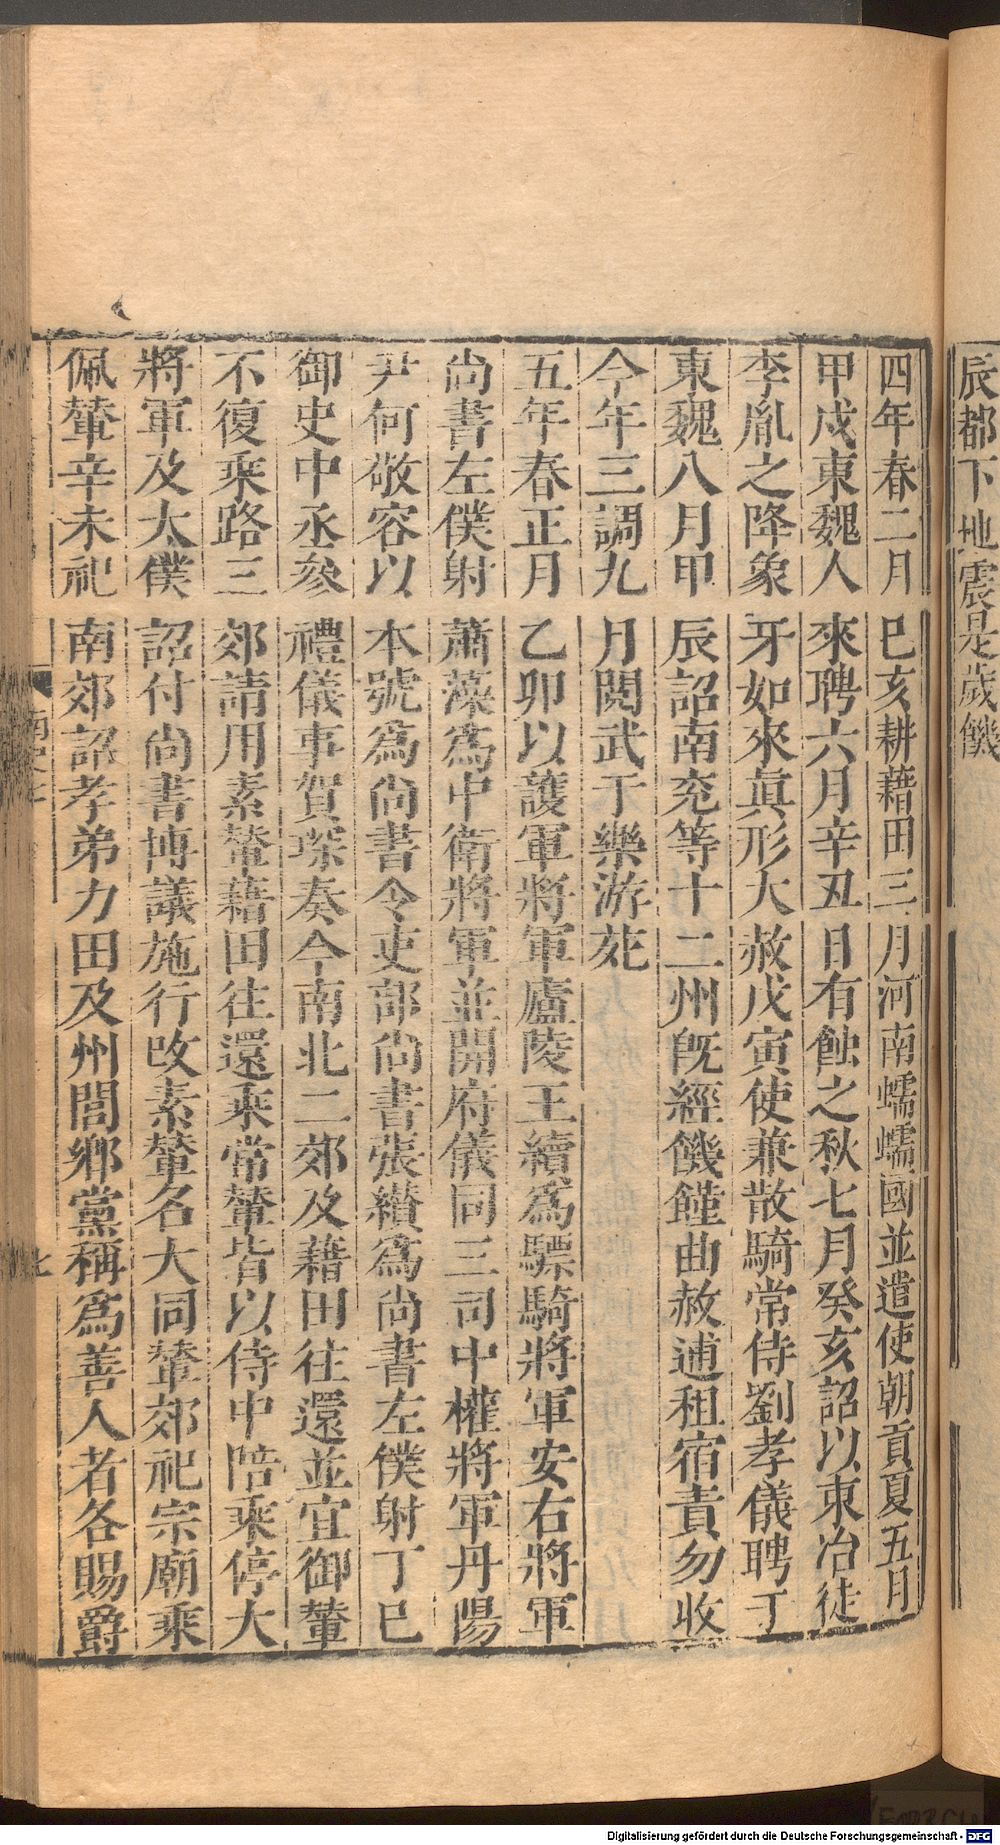 辰都下地震是歲饑
四年春二月巳亥耕藉田三月河南蠕蠕國並遣使朝貢夏五月
甲戍東魏人來聘六月辛丑日有蝕之秋七月癸亥詔以東冶徒
李胤之降象牙如來眞形大赦戊寅使兼散騎常侍劉孝儀聘于
東魏八月甲辰詔南兖等十二州旣經饑饉曲赦逋租宿責勿收
今年三調九月閱武于樂游苑
五年春正月乙卯以護軍將軍廬陵王續爲驃騎將軍安右將軍
尚書左僕射蕭藻爲中衛將軍並開府儀同三司中權將軍丹陽
尹何敬容以本號爲尚書令吏部尚書張纘爲尚書左僕射丁巳
御史中丞參禮儀事賀琛奏今南北二郊及藉田往還並宜御輦
不復乘路三郊請用素輦藉田往還乘常輦皆以侍中陪乘停大
將軍及太僕詔付尚書博議施行改素輦名大同輦郊祀宗廟乘
佩輦辛未祀南郊詔孝弟力田及州閭鄉黨稱爲善人者各賜爵
Digitalisierung gefördert durch die Deutsche Forschungsgemeinschaft - DFG